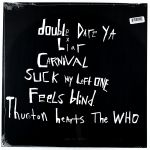 double Dare YA
Liar
CARNIVAL
SUCK My Left ONE
Feels blind
Thurston hearts The WHO